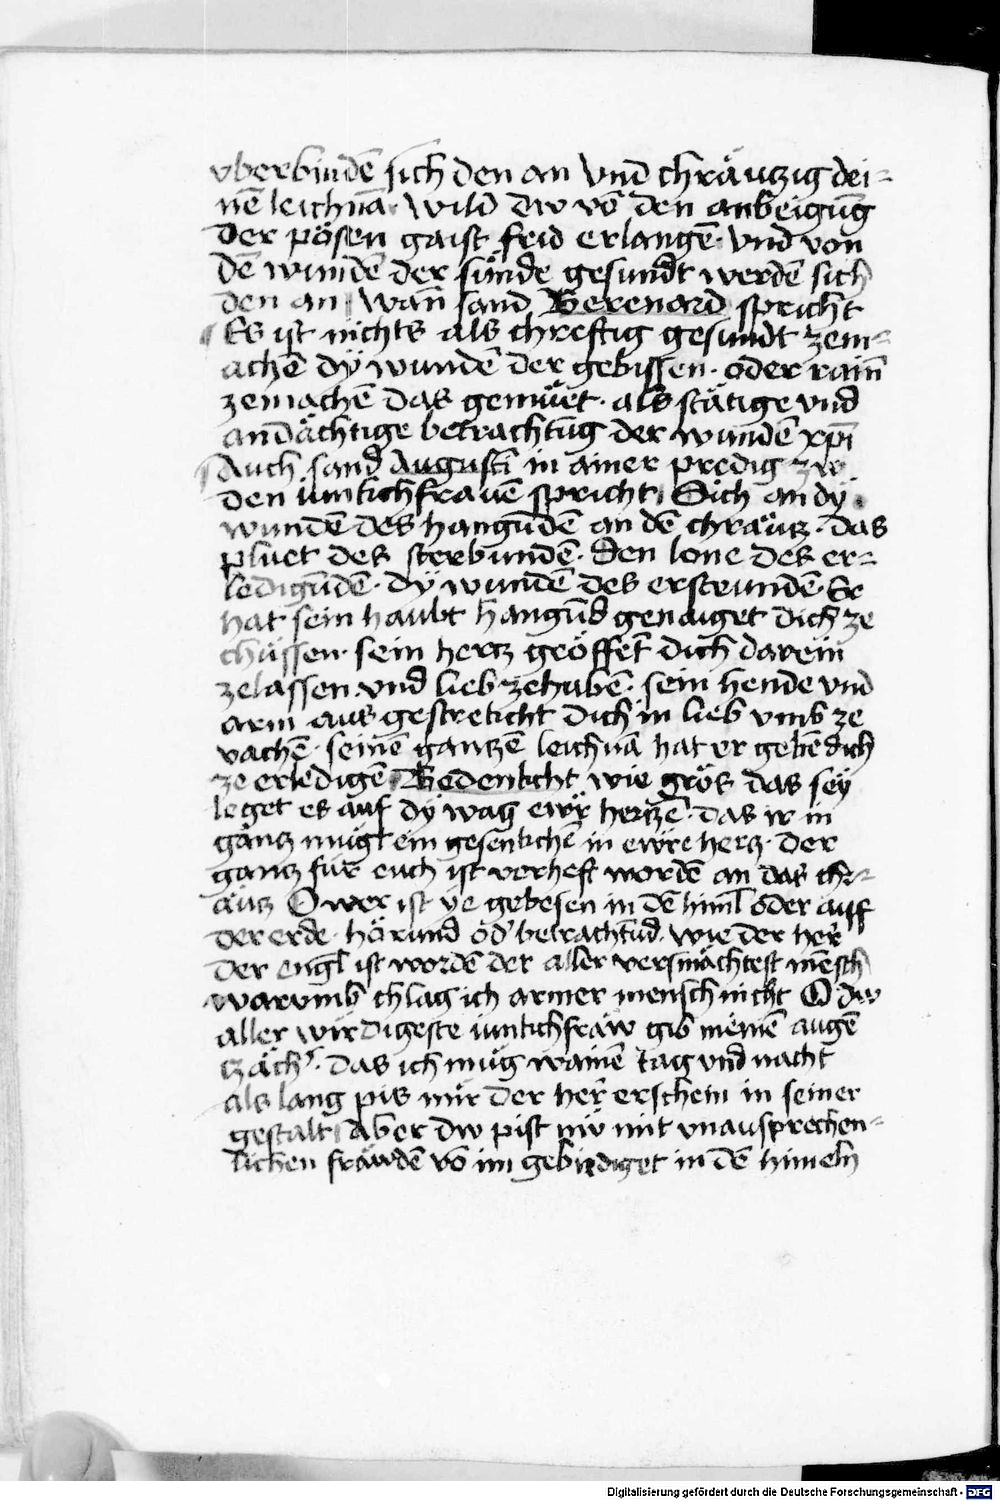 vberbindē sich den an vnd chräuczig dei-
nē leichnā. wild dw vō den anbeigūg
der pösen gaist frid erlangē. vnd von
dē wundē der sünde gesundt werdē sich
den an wan̄ sand Berenard spricht
Es ist nichts als chreftig gesundt zem-
achē dÿ wundē der gebissen. oder rain̄
zemachē das gemüet. als stätige vnd
andächtige betrachtūg der wundē xp̄i
Auch sand Augusti in ainer predig zw
den iunkchfrauē spricht. Sich an dÿ
wundē des hangūdē an dē chräucz. das
pluet des sterbundē. den lone des er-
ledigūdē. dÿ wundē des ersteundē. Er
hat sein haubt hangūd genaiget dich ze
chüssen. sein hercz geöffet dich darein
zelassen. vnd lieb zehabē. sein hende vnd
arm aus gestrekcht dich in lieb vmb ze
vachē. seinē ganczē leichnā hat er gebē dich
ze erledigē. Bedenkcht wie grös das sey
leget es auf dÿ wag ewr̄ herczē. das ir in
gäncz mügt ein gesenkchē in ewre hercz. der
gancz für euch ist verheft wordē an das chr-
äucz O wer ist ye gebesen in dē himl oder auff
der erde. hörund od' betrachtūd. wie der her̄
der engl ist wordē der aller versmächtest mēsch
warumb chlag ich armer mensch nicht O dw
aller wirdigeste iunkchfraw gib meinē augē
czäch'. das ich müg wainē tag vnd nacht
als lang pis mir der her̄ erschein in seiner
gestalt aber dw pist nw mit vnausprechen-
lichen fräwdē vō im gebirdiget in dē himeln
Digitalisierung gefördert durch die Deutsche Forschungsgemeinschaft - DFG